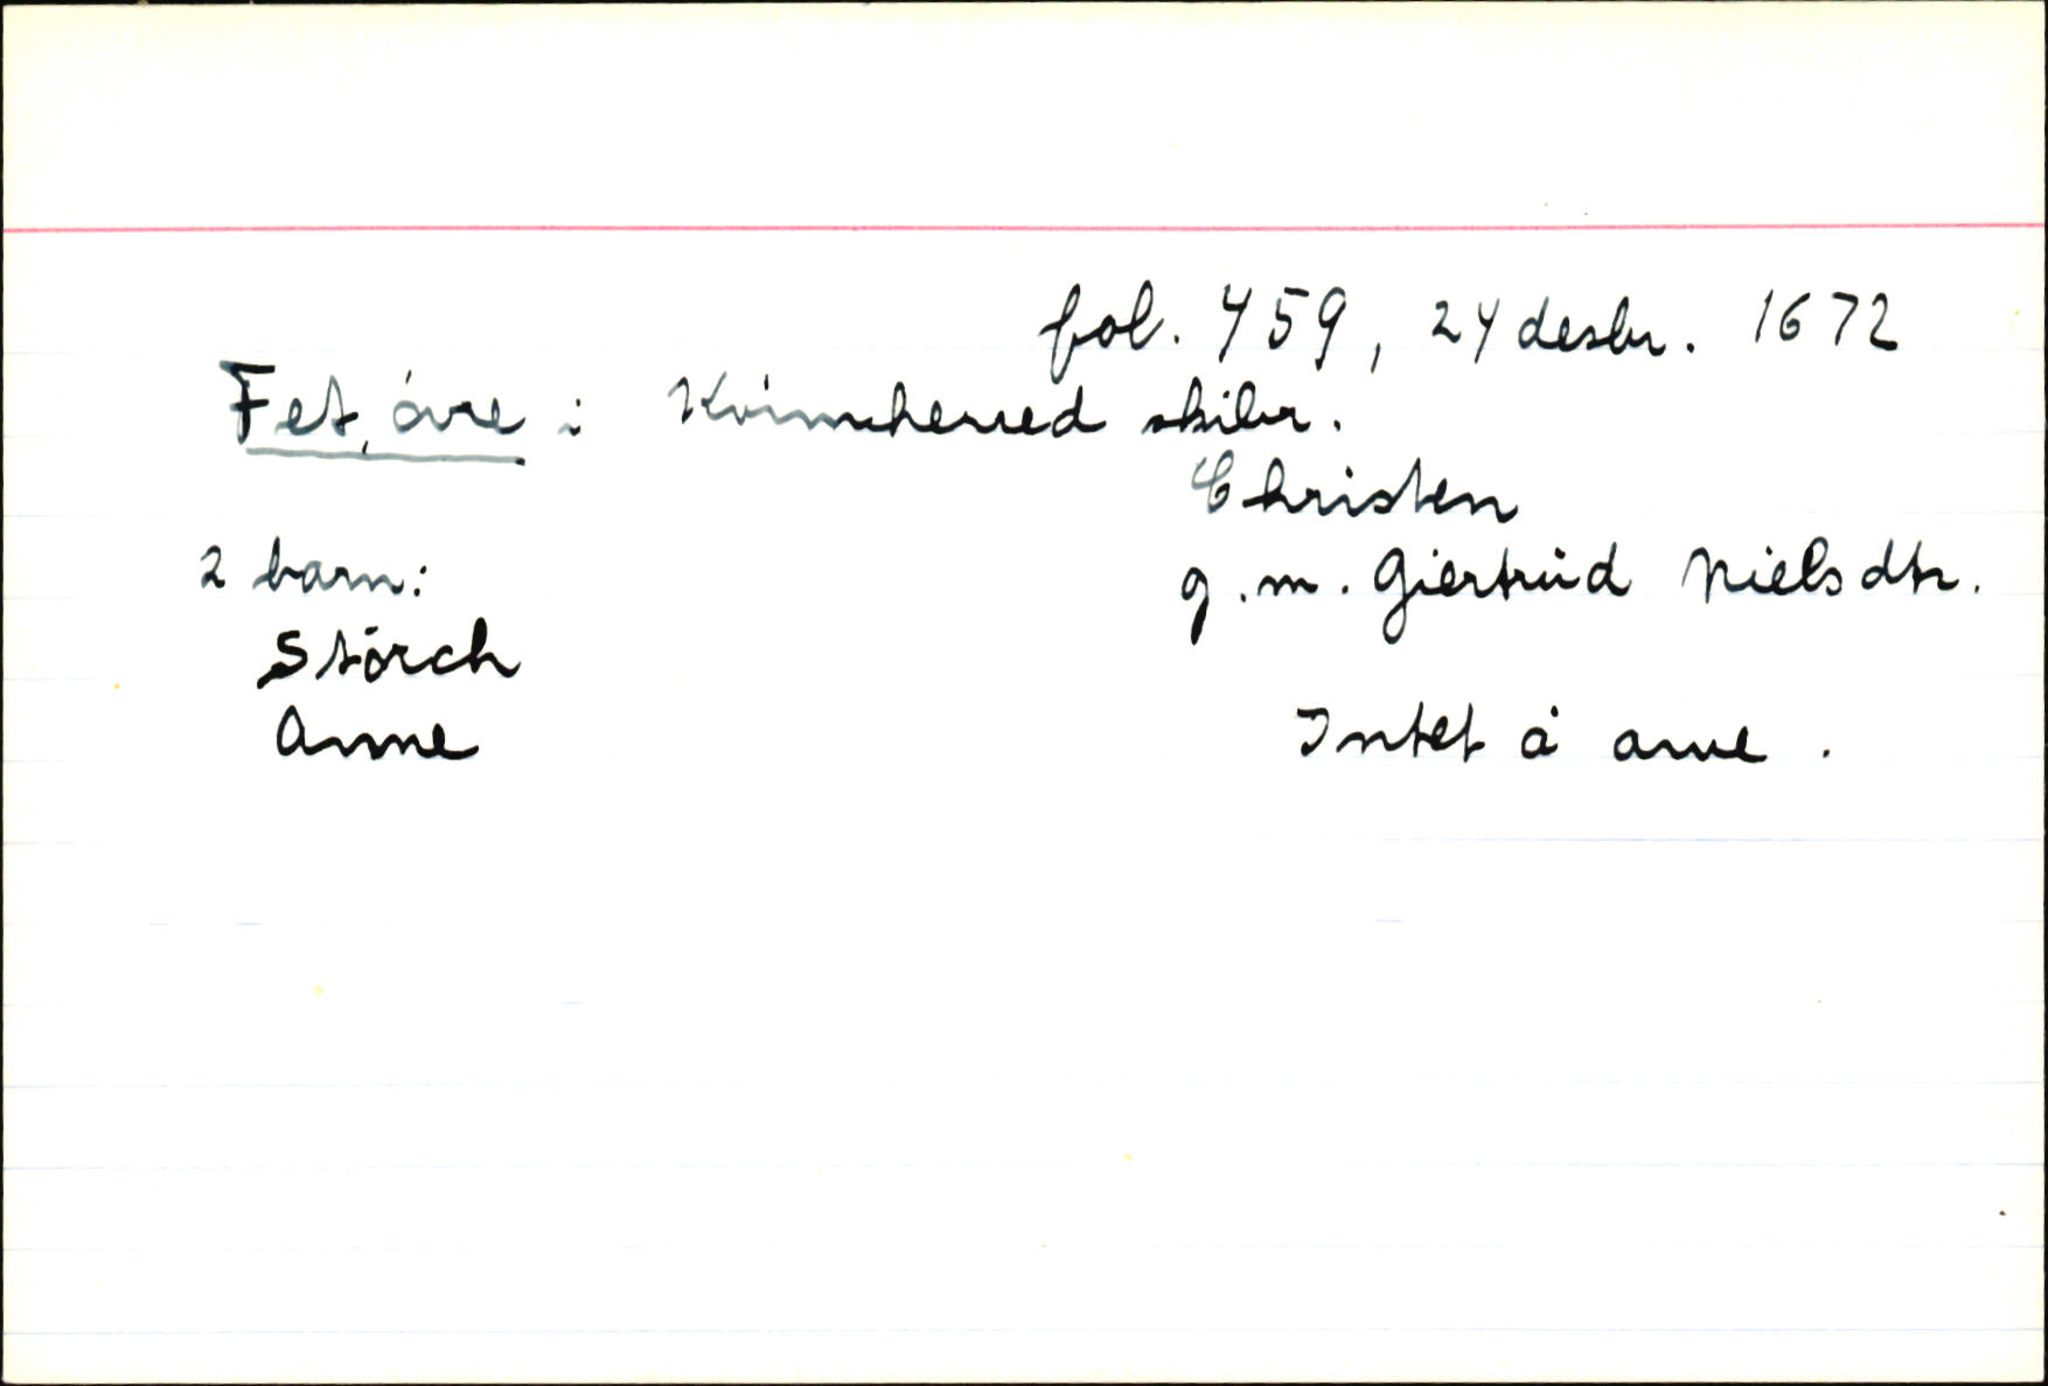 fol. 459, 24 desbr. 1672
Fet, øvre i Kvinnherred skibr.
Christen
2 barn: g.m. Giertrud Nielsdtr.
Størch
Anne Intet å arve.